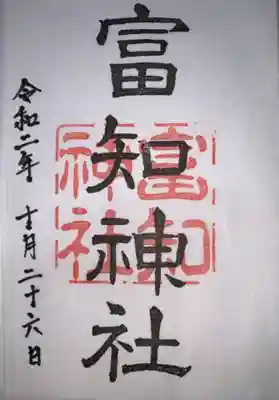 富知神社
令和二年 十一月二十六日
富知
神社